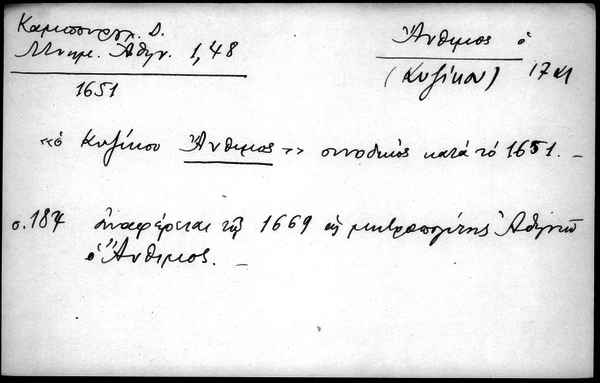 Καμπούρογλ. Δ.
Μνημ. Ἀθην. 1,48
1651
Ἄνθιμος ὁ
(Κυζίκου)
«ὁ Κυζίκου Ἄνθιμος» συνοδικῶς κατά τό 1651. –
σ. 187 ἀναφέρεται τῷ 1669 ὡς μητροπολίτης Ἀθηνῶν
ὁ Ἄνθιμος. –